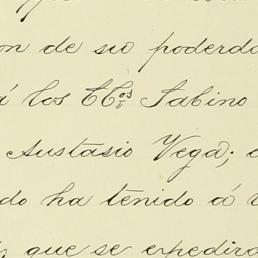 on de su poderda
á los CC.os Sabino
Austasio Vega; c
do ha tenido á
que se expedira